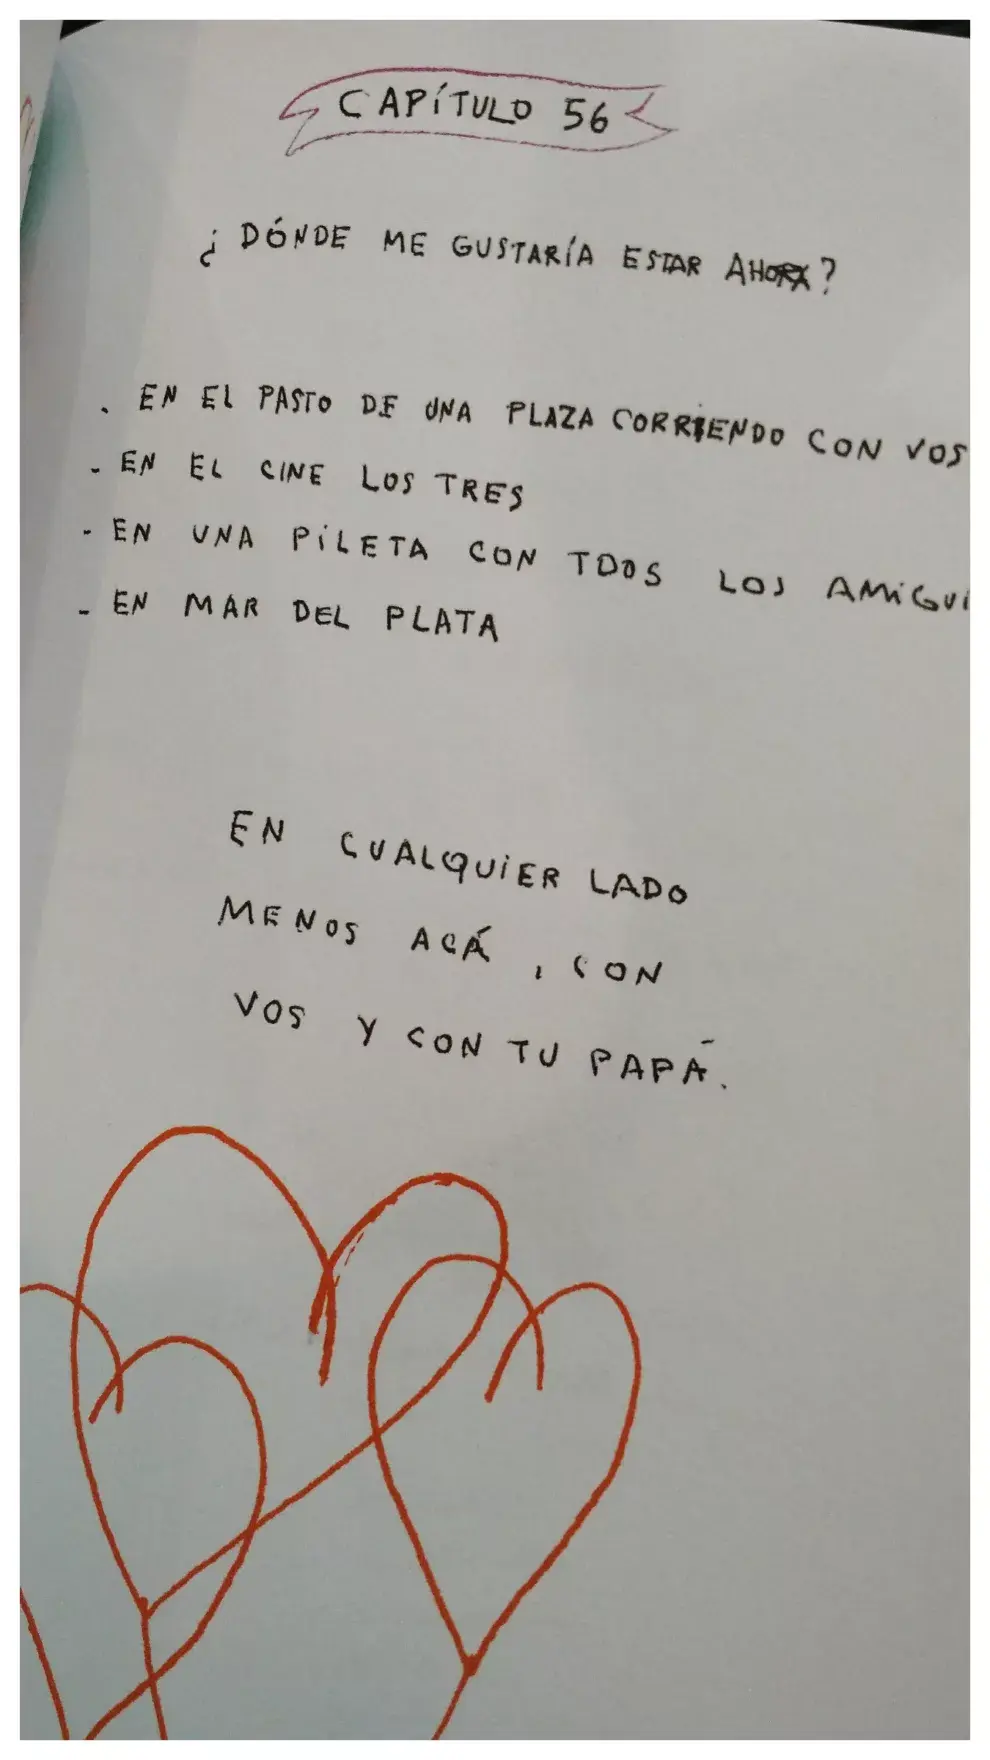 CAPÍTULO 56
¿DÓNDE ME GUSTARÍA ESTAR AHORA?
. EN EL PASTO DE UNA PLAZA CORRIENDO CON VOS
- EN EL CINE LOS TRES
- EN UNA PILETA CON TDOS LOS AMIGUI
- EN MAR DEL PLATA
EN CUALQUIER LADO
MENOS ACÁ, CON
VOS Y CON TU PAPÁ.